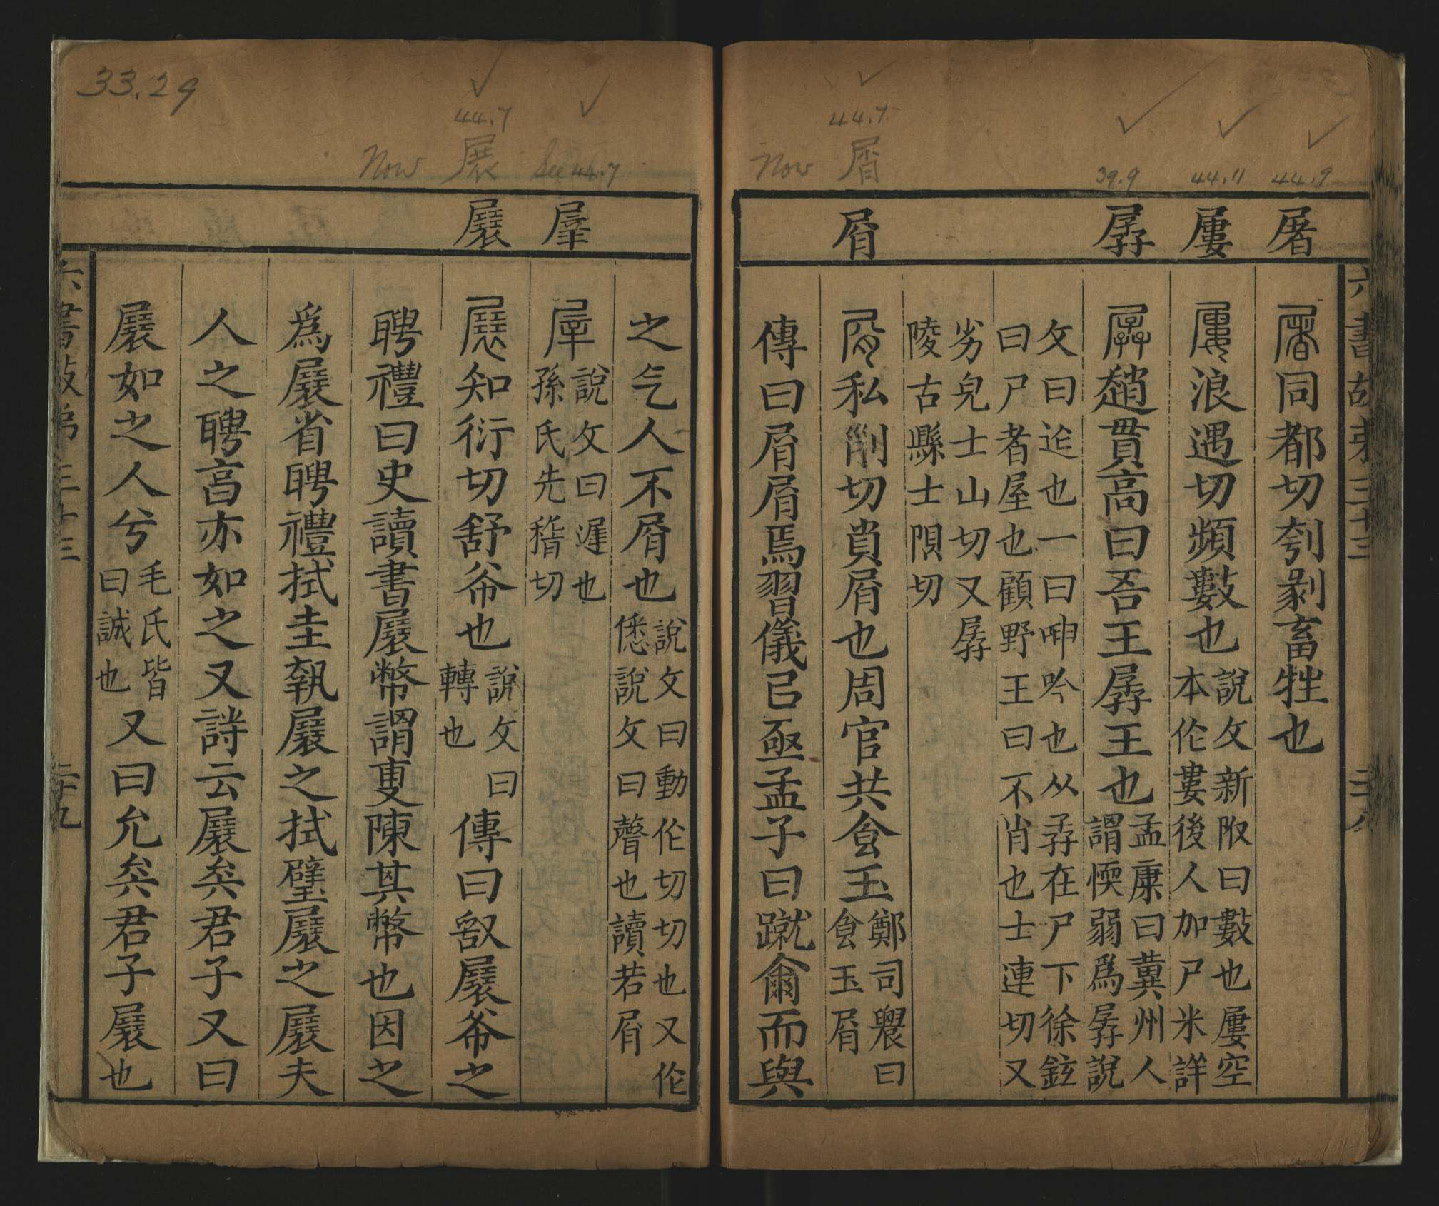 33.29
44.7
展
Now
See 44.7
44.7
屑
Now
39.9
44.11
44.9
屠
屢
孱
屑
六書故弟三十三
二十八
同都切刳剥畜牲也
浪遇切頻數也
說文新附曰數也屢空
本作婁後人加尸未詳
趙貫高曰吾王孱王也
孟康曰冀州人
謂愞弱爲孱說
文曰迮也一曰呻吟也从孨在尸下徐鉉
曰尸者屋也顧野王曰不肖也士連切又
劣皃士山切又孱
陵古縣士限切
私削切肖屑也周官共食玉
鄭司農曰
食玉屑
傳曰屑屑焉習儀已亟孟子曰蹴爾而與
屖
展
之乞人不屑也
說文曰動作切切也又作
僁說文曰聲也讀若屑
說文曰遟也
孫氏先稽切
知衍切舒布也
說文曰
轉也
傳曰敢展布之
聘禮曰史讀書展幣謂叓陳其幣也因之
爲展省聘禮拭圭執展之拭璧展之展夫
人之聘亯亦如之又詩云展矣君子又曰
展如之人兮
毛氏皆
曰誠也
又曰允矣君子展也
六書故弟三十三
二十九